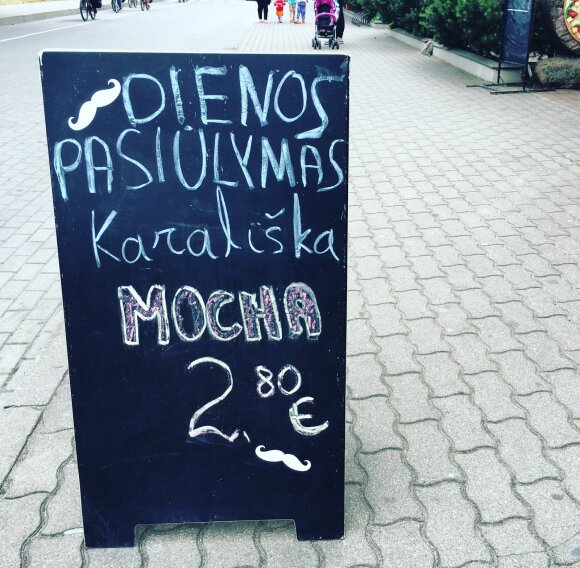 DIENOS
PASIŪLYMAS
Karališka
MOCHA
2,80 €